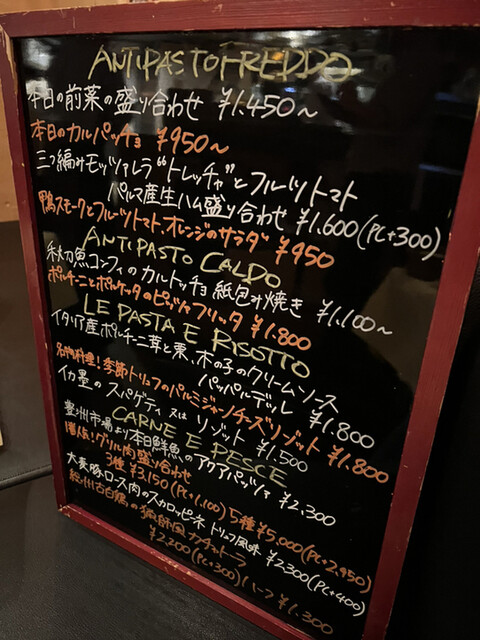 ANTIPASTO FREDDO
本日の前菜の盛り合わせ ¥1.450〜
本日のカルパッチョ ¥950〜
三つ編みモッツァレラ"トレッチャ"とフルーツトマト
パルマ産生ハム盛り合わせ ¥1.600(PC+300)
鴨スモークとフルーツトマト、オレンジのサラダ ¥950
ANTIPASTO CALDO
秋刀魚コンフィのカルトッチョ 紙包み焼き ¥1.100〜
ポルチーニとポルケッタのピッツァフリッタ ¥1.800
LE PASTA E RISOTTO
イタリア産ポルチーニ茸と栗、木の子のクリームソース
パッパルデッレ ¥1.800
名物料理！季節トリュフのパルミジャーノチーズリゾット ¥1.800
イカ墨のスパゲティ 又は リゾット ¥1.500
CARNE E PESCE
豊洲市場より本日鮮魚のアクアパッツァ ¥2.300
人気！グリル肉盛り合わせ
3種 ¥3.150(PC+1.100) 5種 ¥5.000(PC+2.950)
大麦豚ロース肉のスカロッピーネ トリュフ風味 ¥2.300(PC+400)
総州古白鶏の猟師風カチャトーラ
¥2.200(PC+300) ハーフ ¥1.300